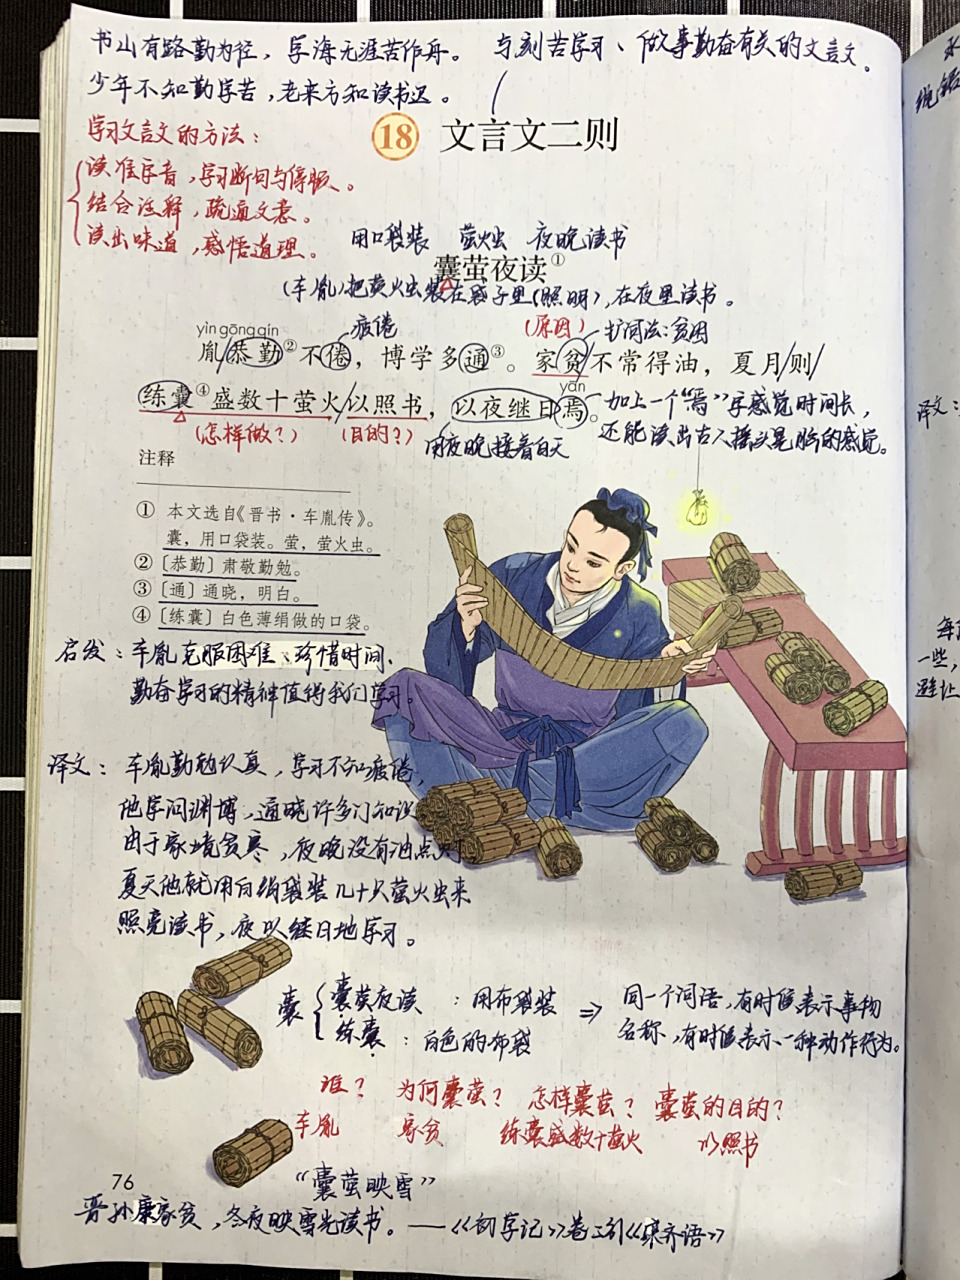 书山有路勤为径，学海无涯苦作舟。 与刻苦学习、做事勤奋有关的文言文。
少年不知勤学苦，老来方知读书迟。
18 文言文二则
学习文言文的方法：
读准字音，学习断句与停顿。
结合注释，疏通文意。
读出味道，感悟道理。
用口袋装 萤火虫 夜晚读书
囊萤夜读①
(车胤)把萤火虫装在袋子里(照明)，在夜里读书。
yìn gōng qín 疲倦 (原因) 扩词法：贫困
胤/恭勤②不倦，博学多通③。家贫不常得油，夏月/则/
yān
练囊④盛数十萤火/以照书，以夜继日焉。 加上一个“焉”字感觉时间长，
(怎样做？) (目的？) 用夜晚接着白天 还能读出古人摇头晃脑的感觉。
注释
① 本文选自《晋书·车胤传》。
囊，用口袋装。萤，萤火虫。
②〔恭勤〕肃敬勤勉。
③〔通〕通晓，明白。
④〔练囊〕白色薄绢做的口袋。
启发：车胤克服困难、珍惜时间、
勤奋学习的精神值得我们学习。
译文：车胤勤勉认真，学习不知疲倦，
他学问渊博，通晓许多门知识
由于家境贫寒，夜晚没有油点灯
夏天他就用白绢袋装几十只萤火虫来
照亮读书，夜以继日地学习。
囊 囊萤夜读：用布袋装 ⇒ 同一个词语，有时候表示事物
练囊：白色的布袋 名称，有时候表示一种动作行为。
谁？ 为何囊萤？ 怎样囊萤？ 囊萤的目的？
车胤 家贫 练囊盛数十萤火 以照书
76 “囊萤映雪”
晋孙康家贫，冬夜映雪光读书。——《初学记》卷二引《宋齐语》
水
统锻
译文：
每
一些，
避让